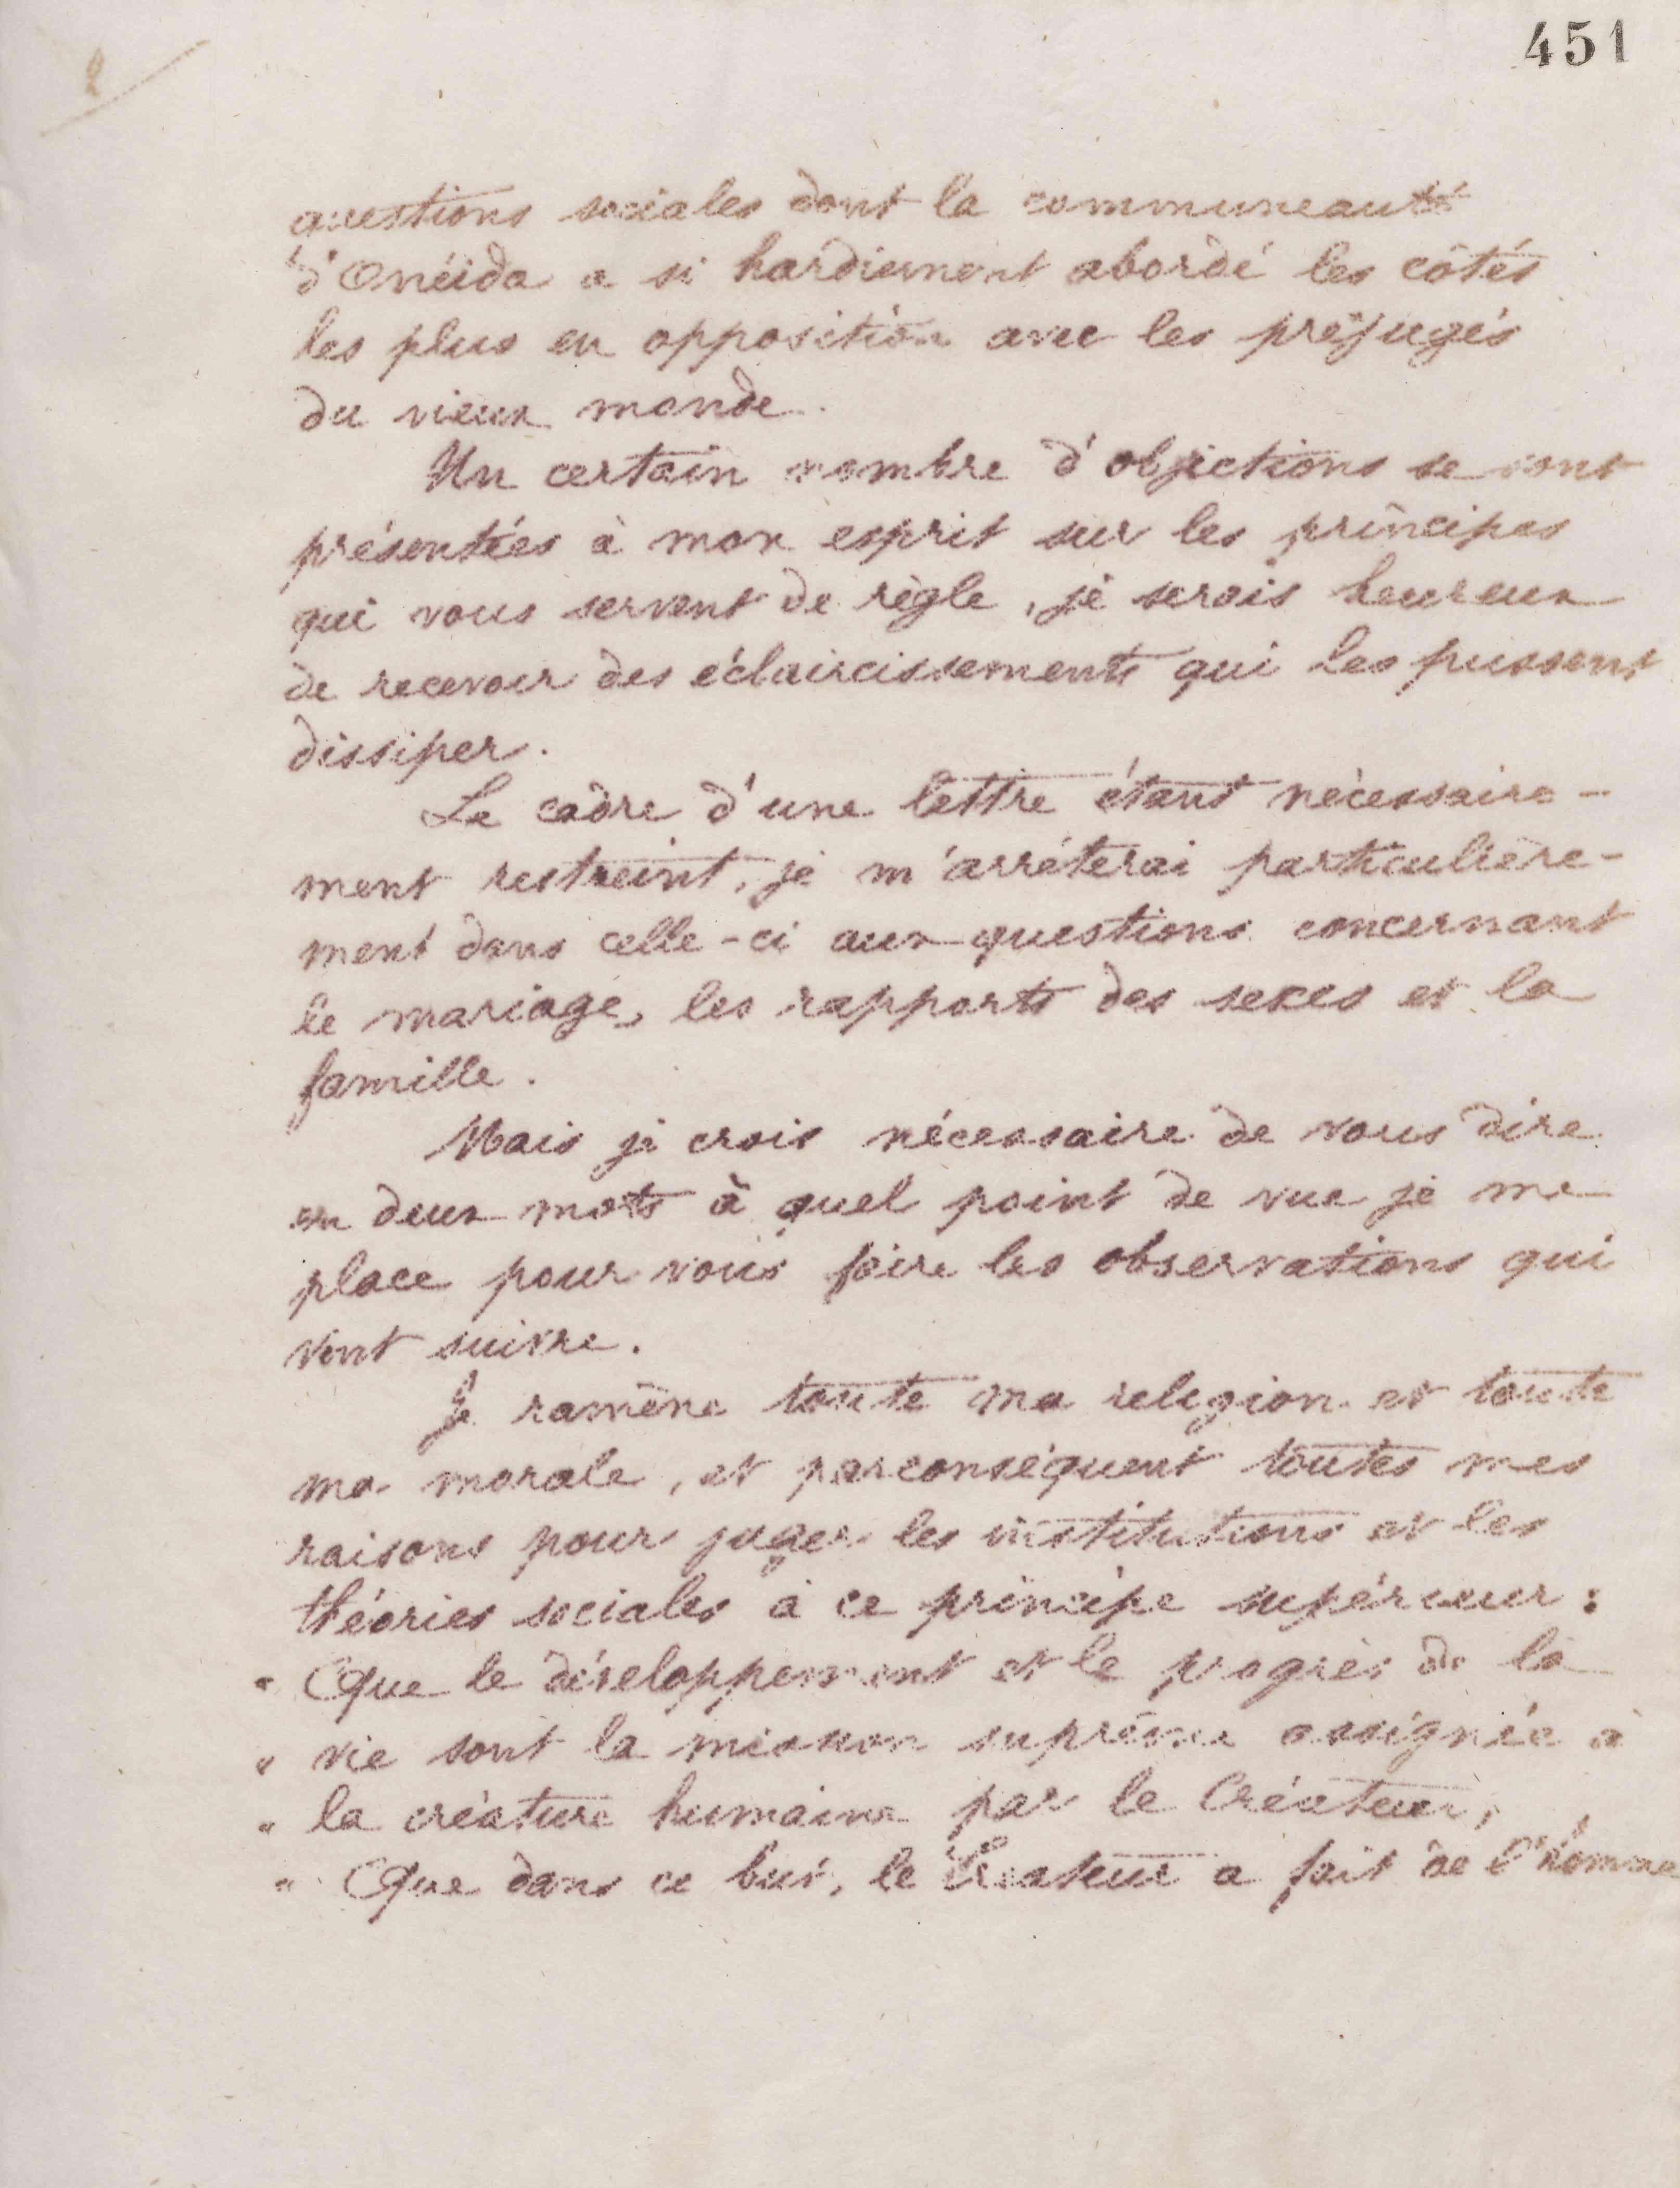 451
2
questions sociales dont la communeauté
d'Onéïda a si hardiement abordé les côtés
les plus en opposition avec les préjugés
du vieux monde.
Un certain nombre d'objections se sont
présentées à mon esprit sur les principes
qui vous servent de règle, je serais heureux
de recevoir des éclaircissements qui les pussent
dissiper.
Le cadre d'une lettre étant nécessaire-
ment restreint, je m'arrêterai particulière-
ment dans celle-ci aux questions concernant
le mariage, les rapports des sexes et la
famille.
Mais je crois nécessaire de vous dire
en deux mots à quel point de vue je me
place pour vous faire les observations qui
vont suivre.
Je ramène toute ma religion et toute
ma morale, et parconséquent toutes mes
raisons pour juger les institutions et les
théories sociales à ce principe supérieur :
" Que le développement et le progrès de la
" vie sont la mission suprême assignée à
" la créature humaine par le Créateur,
" Que dans ce but, le Créateur a fait de l'homme